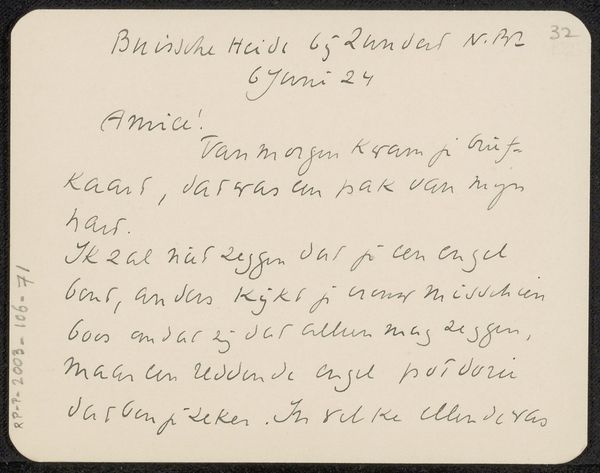 32
Buissche Heide bij Zundert N.Br
6 Juni 24
Amice!
Van morgen kwam je brief-
kaart, dat was een pak van mijn
hart.
Ik zal niet zeggen dat je een engel
bent, anders kijkt je vrouw misschien
boos omdat zij dat alleen mag zeggen,
maar een reddende engel potdorie
dat ben je zeker. In welke ellende was
RP-P-2003-106-71